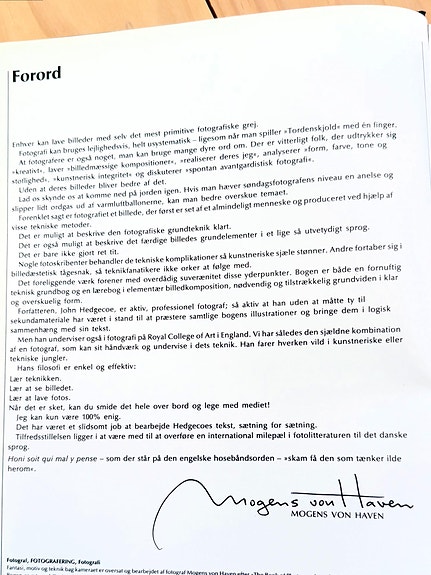 Forord
Enhver kan lave billeder med selv det mest primitive fotografiske grej.
Fotografi kan bruges lejlighedsvis, helt usystematisk – ligesom når man spiller »Tordenskjold« med én finger.
At fotografere er også noget, man kan bruge mange dyre ord om. Der er vitterligt folk, der udtrykker sig
»kreativt«, laver »billedmæssige kompositioner«, »realiserer deres jeg«, analyserer »form, farve, tone og
stoflighed«, »kunstnerisk integritet« og diskuterer »spontan avantgardistisk fotografi«.
Uden at deres billeder bliver bedre af det.
Lad os skynde os at komme ned på jorden igen. Hvis man hæver søndagsfotografens niveau en anelse og
slipper lidt ordgas ud af varmluftballonerne, kan man bedre overskue temaet.
Forenklet sagt er fotografi et billede, der først er set af et almindeligt menneske og produceret ved hjælp af
visse tekniske metoder.
Det er muligt at beskrive den fotografiske grundteknik klart.
Det er også muligt at beskrive det færdige billedes grundelementer i et lige så utvetydigt sprog.
Det er bare ikke gjort ret tit.
Nogle fotoskribenter behandler de tekniske komplikationer så kunstneriske sjæle stønner. Andre fortaber sig i
billedæstetisk tågesnak, så teknikfanatikere ikke orker at følge med.
Det foreliggende værk forener med overdådig suverænitet disse yderpunkter. Bogen er både en fornuftig
teknisk grundbog og en lærebog i elementær billedkomposition, nødvendig og tilstrækkelig grundviden i klar
og overskuelig form...
Forfatteren, John Hedgecoe, er aktiv, professionel fotograf; så aktiv at han uden at måtte ty til
sekundamateriale har været i stand til at præstere samtlige bogens illustrationer og bringe dem i logisk
sammenhæng med sin tekst.
Men han underviser også i fotografi på Royal College of Art i England. Vi har således den sjældne kombination
af en fotograf, som kan sit håndværk og undervise i dets teknik. Han farer hverken vild i kunstneriske eller
tekniske jungler.
Hans filosofi er enkel og effektiv:
Lær teknikken.
Lær at se billedet.
Lær at lave fotos.
Når det er sket, kan du smide det hele over bord og lege med mediet!
Jeg kan kun være 100% enig.
Det har været et slidsomt job at bearbejde Hedgecoes tekst, sætning for sætning.
Tilfredsstillelsen ligger i at være med til at overføre en international milepæl i fotolitteraturen til det danske
sprog.
Honi soit qui mal y pense – som der står på den engelske hosebåndsorden – »skam få den som tænker ilde
herom«.
Mogens von Haven
MOGENS VON HAVEN
Fotograf, FOTOGRAFERING, Fotografi
Fantasi, motiv og teknik bag kameraet er oversat og bearbejdet af fotograf Mogens von Haven efter